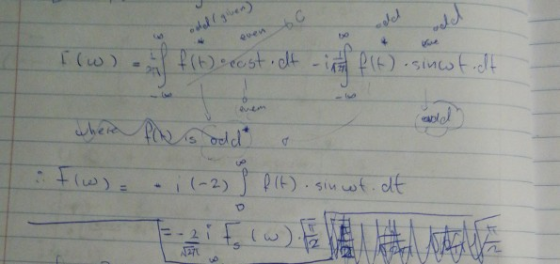 odd (given) even 0 odd odd
i(ω) = 1/√2π ∫_{-∞}^{∞} f(t) · cost · dt - i 1/√2π ∫_{-∞}^{∞} f(t) · sinωt · dt
even odd
where f(t) is odd*
∴ F(ω) = - i (-2) ∫_0^∞ f(t) · sinωt · dt
= -2/√2π i F_s(ω) · √π/2